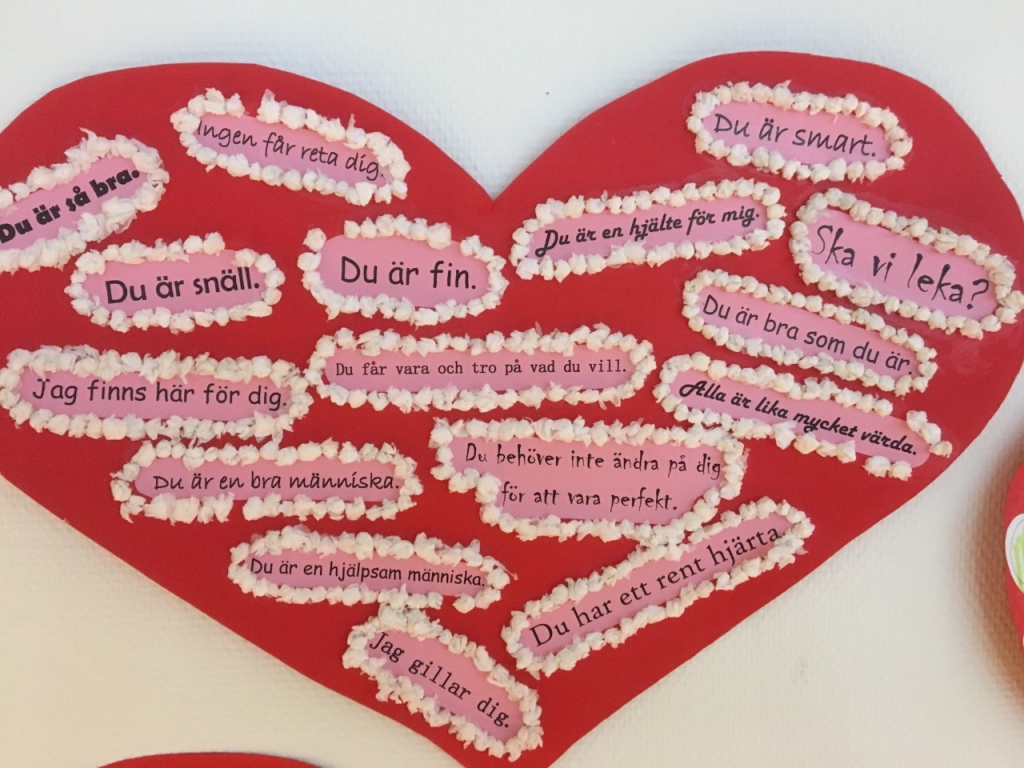 Ingen får reta dig.
Du är smart.
Du är så bra.
Du är en hjälte för mig.
Ska vi leka?
Du är snäll.
Du är fin.
Du är bra som du är.
Jag finns här för dig.
Du får vara och tro på vad du vill.
Alla är lika mycket värda.
Du är en bra människa.
Du behöver inte ändra på dig
för att vara perfekt.
Du är en hjälpsam människa.
Du har ett rent hjärta.
Jag gillar dig.